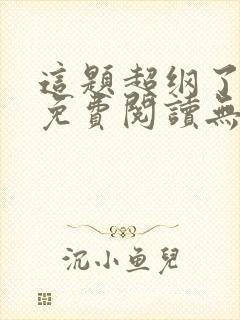 這題超纲了
免費閱讀無
沉小鱼兒